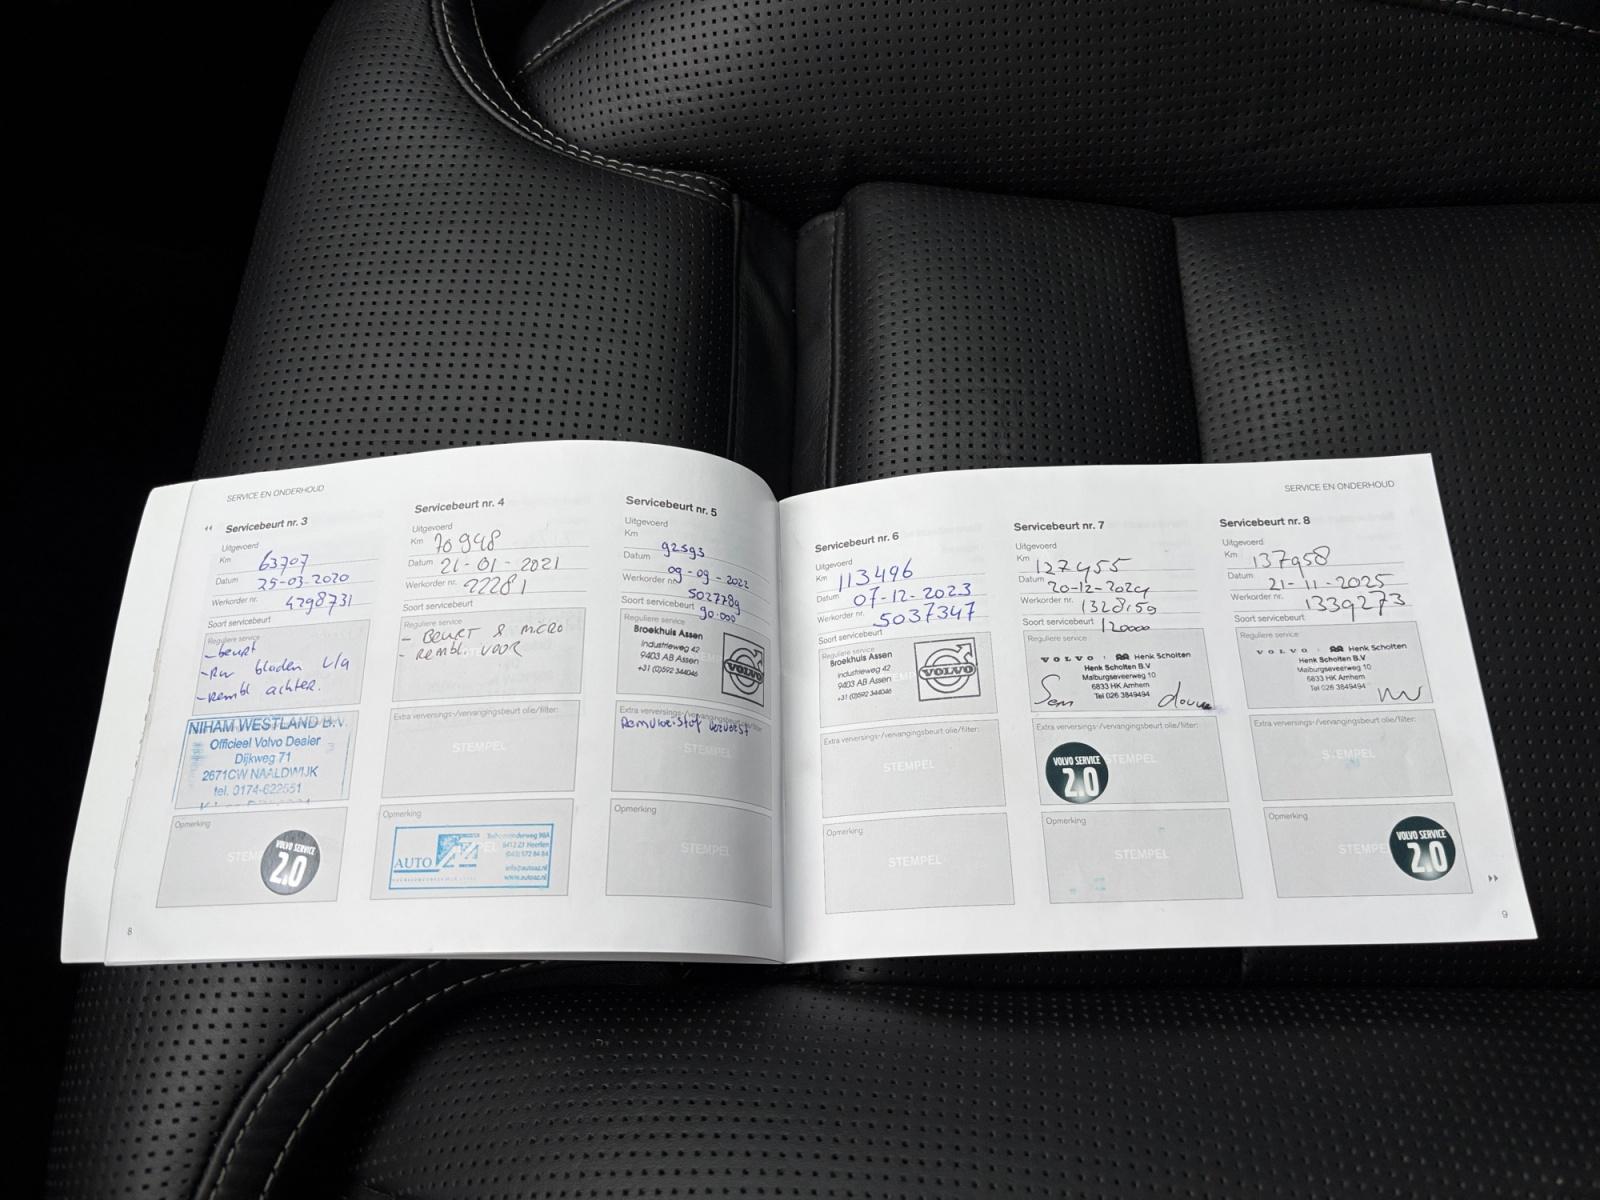 SERVICE EN ONDERHOUD
Servicebeurt nr. 3
Uitgevoerd
Km 63707
Datum 25-03-2020
Werkorder nr. 4298731
Soort servicebeurt
Reguliere service
- beurt
- Rw bladen V/A
- Rembl achter.
NIHAM WESTLAND B.V.
Officieel Volvo Dealer
Dijkweg 71
2671CW NAALDWIJK
tel. 0174-622551
Opmerking
STEM
VOLVO SERVICE
2.0
8
Servicebeurt nr. 4
Uitgevoerd
Km 70948
Datum 21-01-2021
Werkorder nr. 22281
Soort servicebeurt
Reguliere service
- BEURT & MICRO
- REMBL VOOR
Extra verversings-/vervangingsbeurt olie/filter:
STEMPEL
Opmerking
AUTO
6412 ZJ Heerlen
(045) 572 84 84
info@autoaz.nl
www.autoaz.nl
Servicebeurt nr. 5
Uitgevoerd
Km 92593
Datum 09-09-2022
Werkorder nr. 5027789
Soort servicebeurt 90.000
Reguliere service
Broekhuis Assen
Industrieweg 42
9403 AB Assen
+31 (0)592 344046
VOLVO
Extra verversings-/vervangingsbeurt olie/filter:
Remvloeistof ververst
STEMPEL
Opmerking
STEMPEL
Servicebeurt nr. 6
Uitgevoerd
Km 113496
Datum 07-12-2023
Werkorder nr. 5037347
Soort servicebeurt
Reguliere service
Broekhuis Assen
Industrieweg 42
9403 AB Assen
+31 (0)592 344046
VOLVO
Extra verversings-/vervangingsbeurt olie/filter:
STEMPEL
Opmerking
STEMPEL
Servicebeurt nr. 7
Uitgevoerd
Km 127455
Datum 20-12-2024
Werkorder nr. 1328159
Soort servicebeurt 120000
Reguliere service
VOLVO Henk Scholten
Henk Scholten B.V
Malburgseveerweg 10
6833 HK Arnhem
Tel 026 3849494
Extra verversings-/vervangingsbeurt olie/filter:
VOLVO SERVICE
2.0
STEMPEL
Opmerking
STEMPEL
SERVICE EN ONDERHOUD
Servicebeurt nr. 8
Uitgevoerd
Km 137958
Datum 21-11-2025
Werkorder nr. 1339273
Soort servicebeurt
Reguliere service
VOLVO Henk Scholten
Henk Scholten B.V
Malburgseveerweg 10
6833 HK Arnhem
Tel 026 3849494
Extra verversings-/vervangingsbeurt olie/filter:
STEMPEL
Opmerking
STEMPE
VOLVO SERVICE
2.0
9